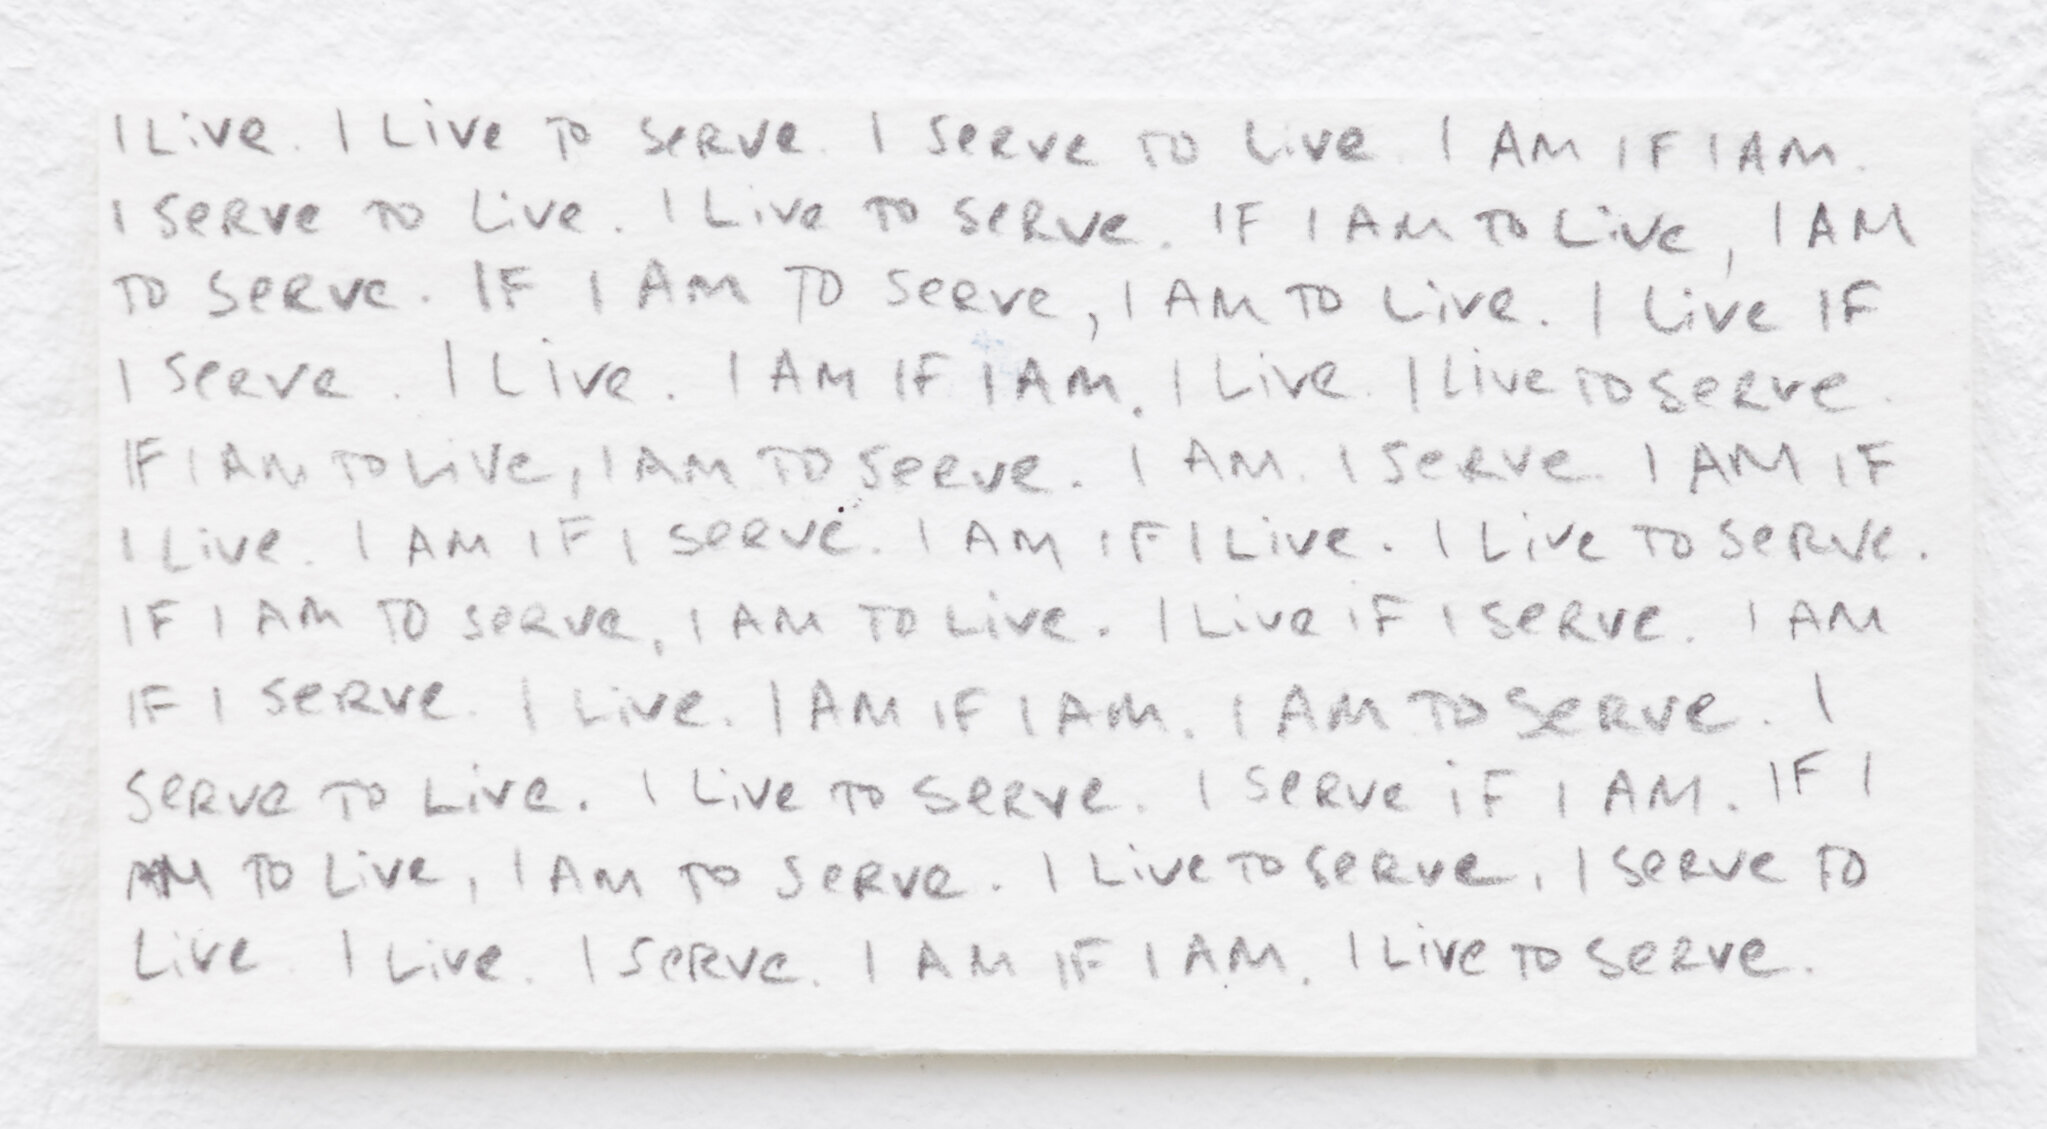 I Live. I Live TO serve. I serve TO Live. I AM IF I AM.
I serve TO Live. I Live TO serve. IF I AM TO Live, I AM
TO serve. IF I AM TO serve, I AM TO Live. I Live IF
I serve. I Live. I AM IF I AM. I Live. I Live TO serve.
IF I AM TO Live, I AM TO serve. I AM. I serve. I AM IF
I Live. I AM IF I serve. I AM IF I Live. I Live TO serve.
IF I AM TO serve, I AM TO Live. I Live iF I serve. I AM
IF I serve. I Live. I AM IF I AM. I AM TO serve. I
serve TO Live. I Live TO serve. I serve iF I AM. IF I
AM TO Live, I AM TO serve. I Live TO serve. I serve TO
Live. I Live. I serve. I AM IF I AM. I Live TO serve.